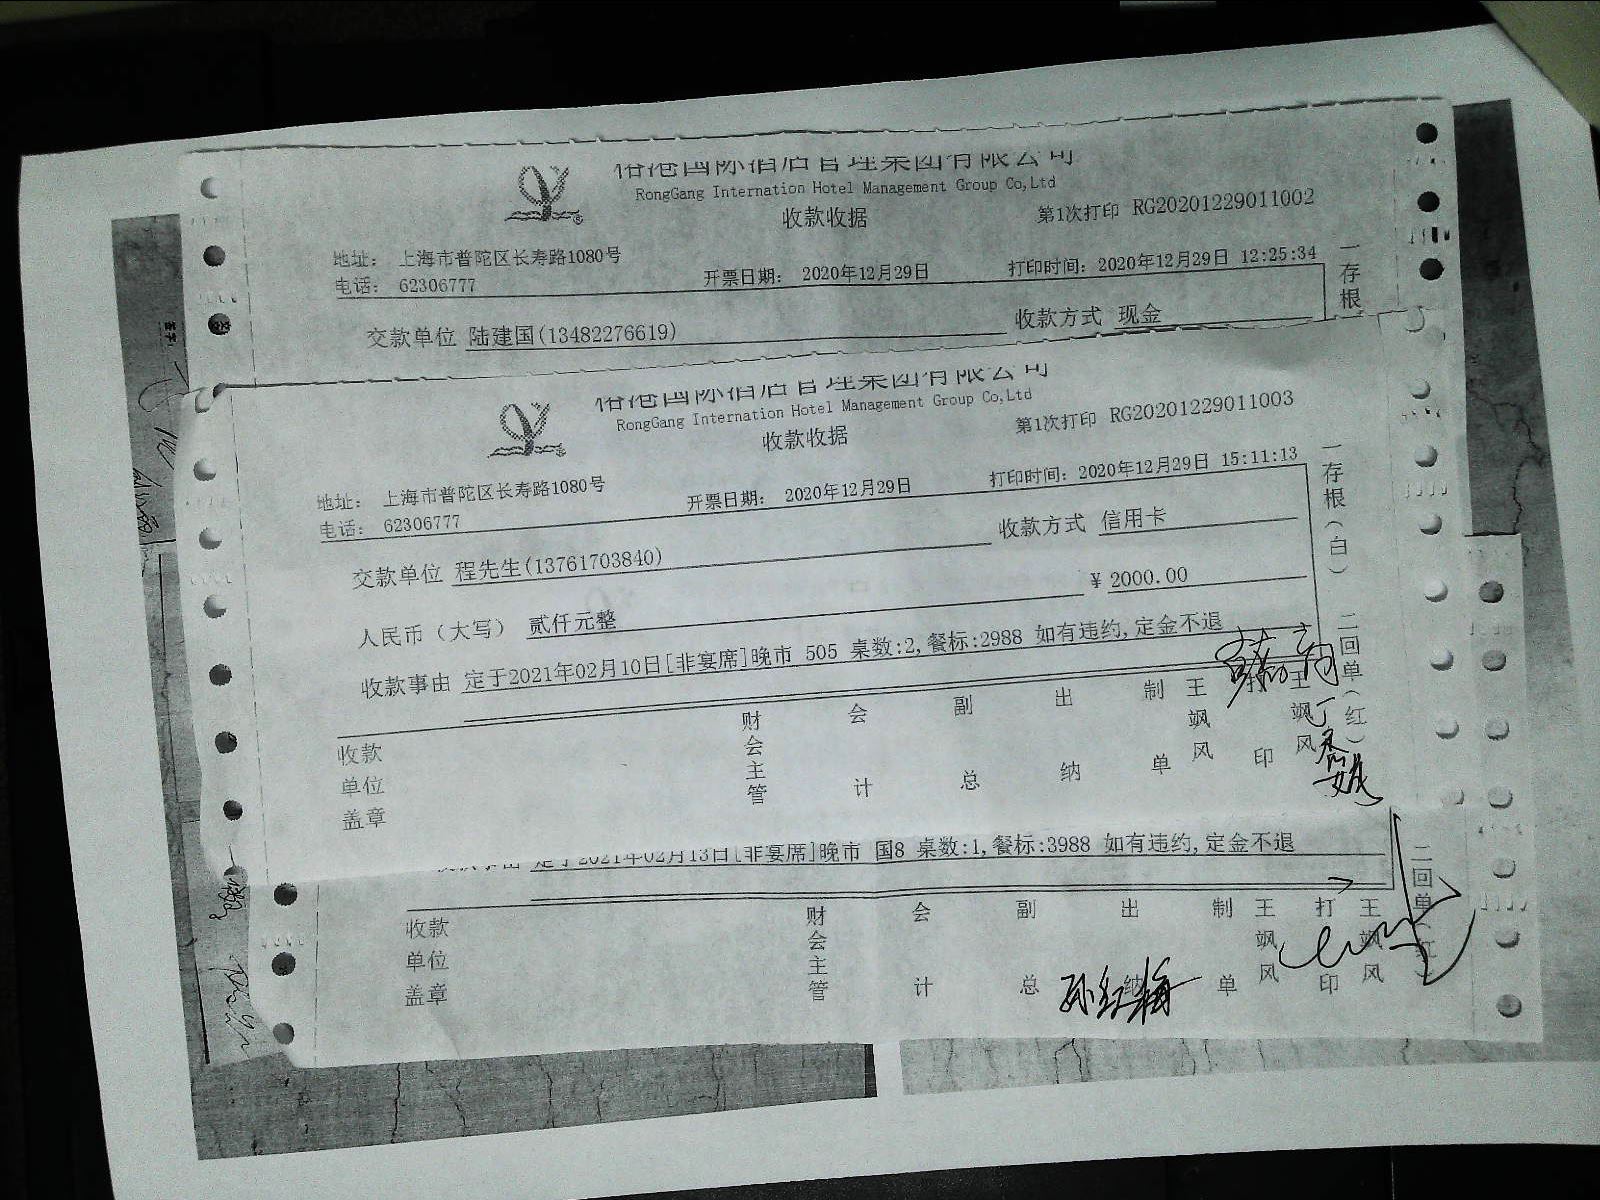 国际酒店管理集团有限公司
RongGang Internation Hotel Management Group Co,Ltd
收款收据
第1次打印 RG20201229011002
地址： 上海市普陀区长寿路1080号
电话： 62306777
开票日期： 2020年12月29日
打印时间：2020年12月29日 12:25:34
一存根
交款单位 陆建国(13482276619)
收款方式 现金
国际酒店管理集团有限公司
RongGang Internation Hotel Management Group Co,Ltd
收款收据
第1次打印 RG20201229011003
地址： 上海市普陀区长寿路1080号
电话： 62306777
开票日期： 2020年12月29日
打印时间：2020年12月29日 15:11:13
一存根(白) 二回单(红)
交款单位 程先生(13761703840)
收款方式 信用卡
人民币（大写） 贰仟元整
¥ 2000.00
收款事由 定于2021年02月10日[非宴席]晚市 505 桌数:2,餐标:2988 如有违约,定金不退
收款单位盖章
财会主管
会计
副总
出纳
制单
王飒风
打印
王飒风
定于2021年02月13日[非宴席]晚市 国8 桌数:1,餐标:3988 如有违约,定金不退
二回单(红)
收款单位盖章
财会主管
会计
副总
出纳
孙红梅
制单
王飒风
打印
王飒风